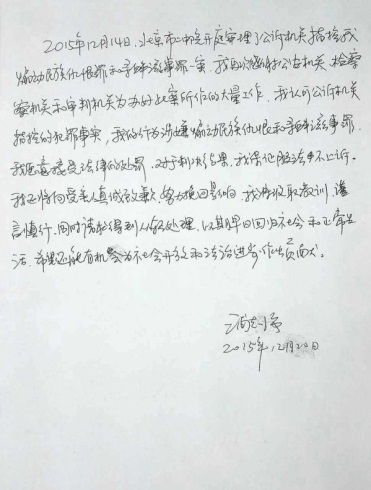 2015年12月14日,北京市二中院开庭审理了公诉机关指控我
煽动民族仇恨罪和寻衅滋事罪一案,我再次感谢公安机关、检察
察机关和审判机关为办好此案所作的大量工作,我认可公诉机关
指控的犯罪事实,我的行为涉嫌煽动民族仇恨和寻衅滋事罪,
我愿意接受法律的处罚,对于判决结果,我保证服法并不上诉。
我还将向受害人真诚致歉,努力挽回影响,我将汲取教训,谨
言慎行,同时请求得到从轻处理,以期早日回归社会和正常生
活,希望还能有机会为社会开放和法治进步作出贡献。
浦志强
2015年12月20日